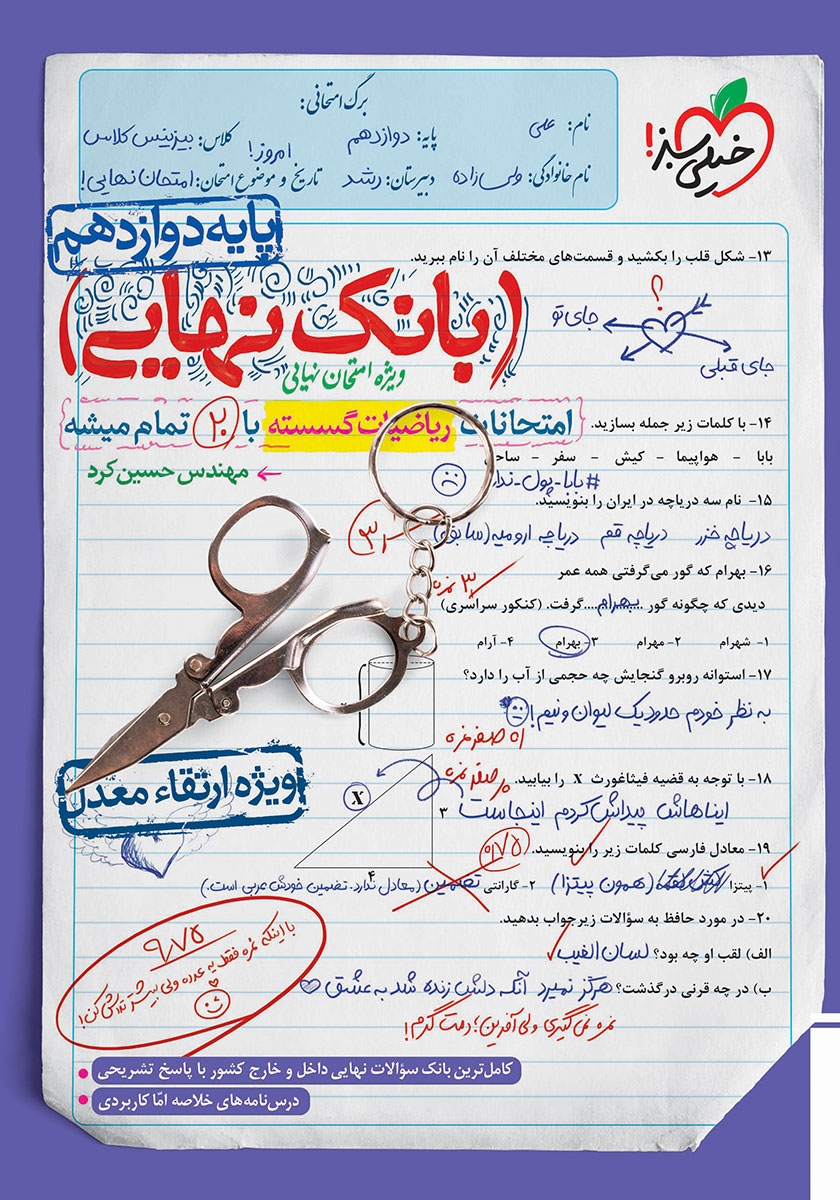 خیلی سبز!
برگ امتحانی:
نام: علی
پایه: دوازدهم
کلاس: بیزینس کلاس
نام خانوادگی: ولی زاده
دبیرستان: رشد
تاریخ و موضوع امتحان: امتحان نهایی!
امروز!
پایه دوازدهم
(بانک نهایی)
ویژه امتحان نهایی
{امتحانات ریاضیات گسسته با ۲۰ تمام میشه}
مهندس حسین کرد
۱۳- شکل قلب را بکشید و قسمت‌های مختلف آن را نام ببرید.
؟
جای تو
جای قبلی
۱۴- با کلمات زیر جمله بسازید.
بابا - هواپیما - کیش - سفر - ساحل
#بابا-پول-نداره
۱۵- نام سه دریاچه در ایران را بنویسید.
دریاچه خزر دریاچه قم دریاچه ارومیه (سابق)
۱۶- بهرام که گور می‌گرفتی همه عمر
۳ نمره
دیدی که چگونه گور ....بهرام.... گرفت. (کنکور سراسری)
۱- شهرام ۲- مهرام ۳- بهرام ۴- آرام
۱۷- استوانه روبرو گنجایش چه حجمی از آب را دارد؟
به نظر خودم حدود یک لیوان و نیم!
اه صفر نمره
ویژه ارتقاء معدل
۱۸- با توجه به قضیه فیثاغورث X را بیابید.
صفر نمره
ایناهاش پیداش کردم اینجاست
X
۳
۴
۱۹- معادل فارسی کلمات زیر را بنویسید.
۰/۷۵
۱- پیتزا (همون پیتزا) ۲- گارانتی تضمین (معادل ندارد. تضمین خودش عربی است.)
۲۰- در مورد حافظ به سؤالات زیر جواب بدهید.
الف) لقب او چه بود؟ لسان الغیب
ب) در چه قرنی درگذشت؟ هرگز نمیرد آنکه دلش زنده شد به عشق
نمره نمی‌گیری ولی آفرین؛ دمت گرم!
۹/۷۵
با اینکه نمره فقط یه عدده ولی بیشتر تلاش کن!
کامل‌ترین بانک سؤالات نهایی داخل و خارج کشور با پاسخ تشریحی
درس‌نامه‌های خلاصه امّا کاربردی